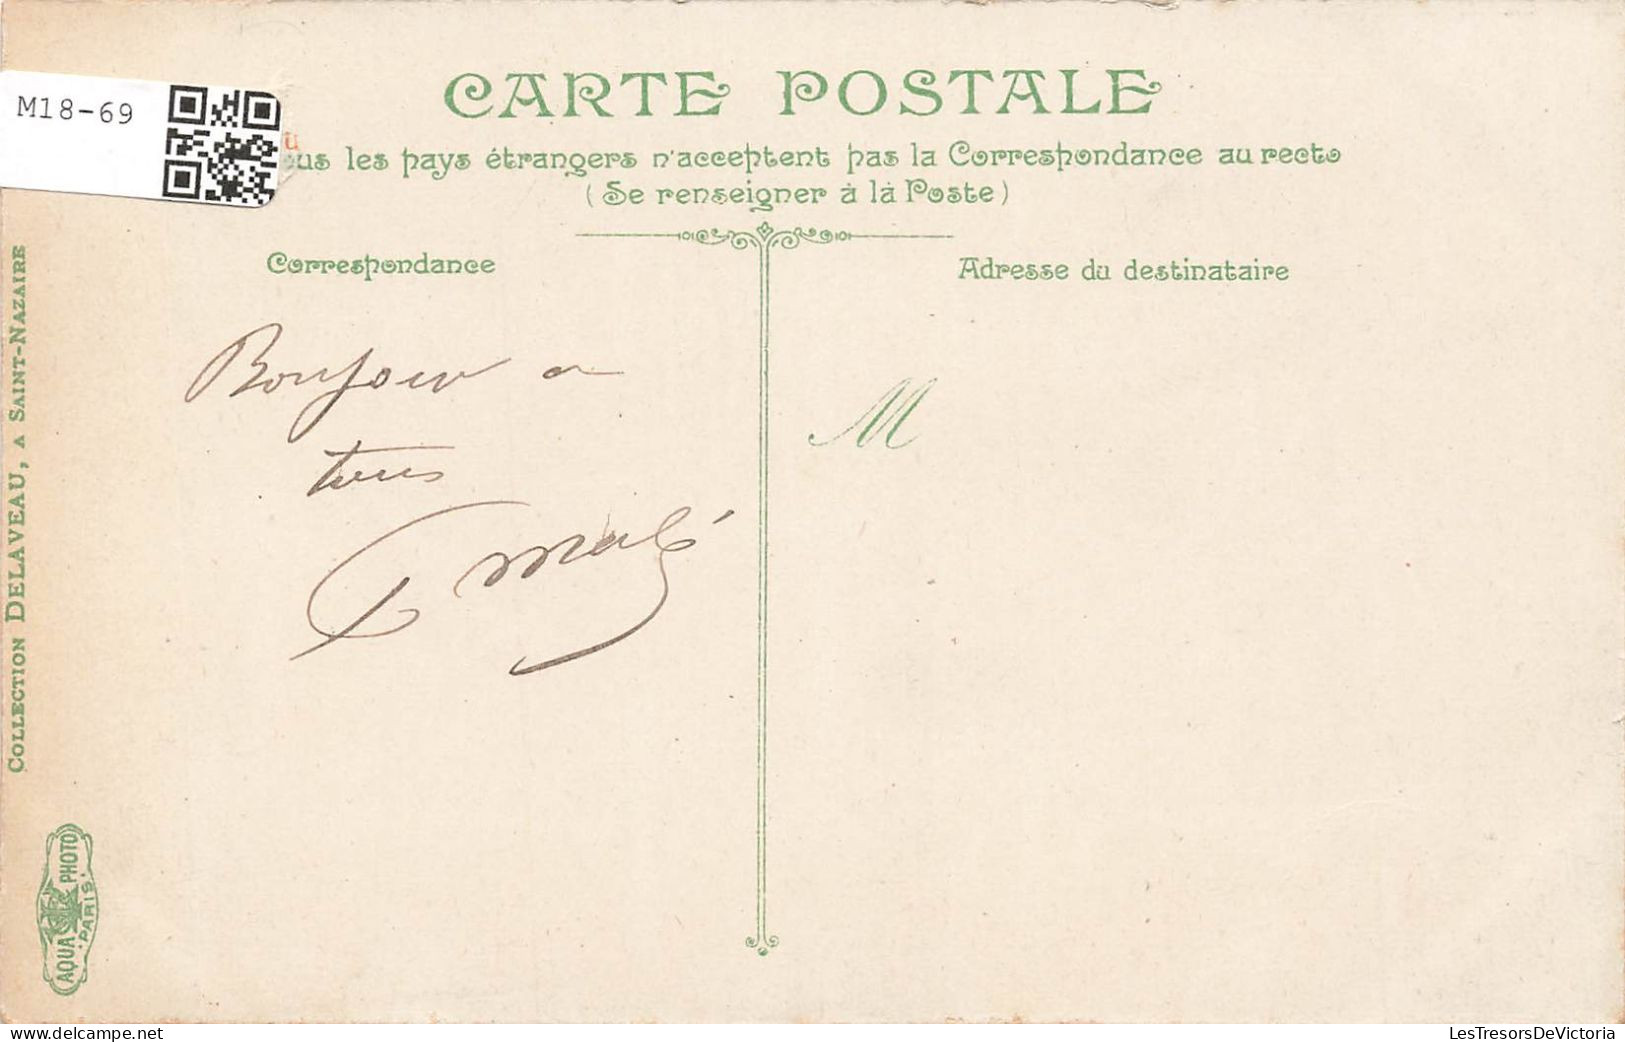 M18-69
CARTE POSTALE
les pays étrangers n'acceptent pas la Correspondance au recto
(Se renseigner à la Poste)
Correspondance
Adresse du destinataire
Bonjour a
tous
M
COLLECTION DELAVEAU, A SAINT-NAZAIRE
AQUA PHOTO
PARIS
LesTresorsDeVictoria
delcampe.net